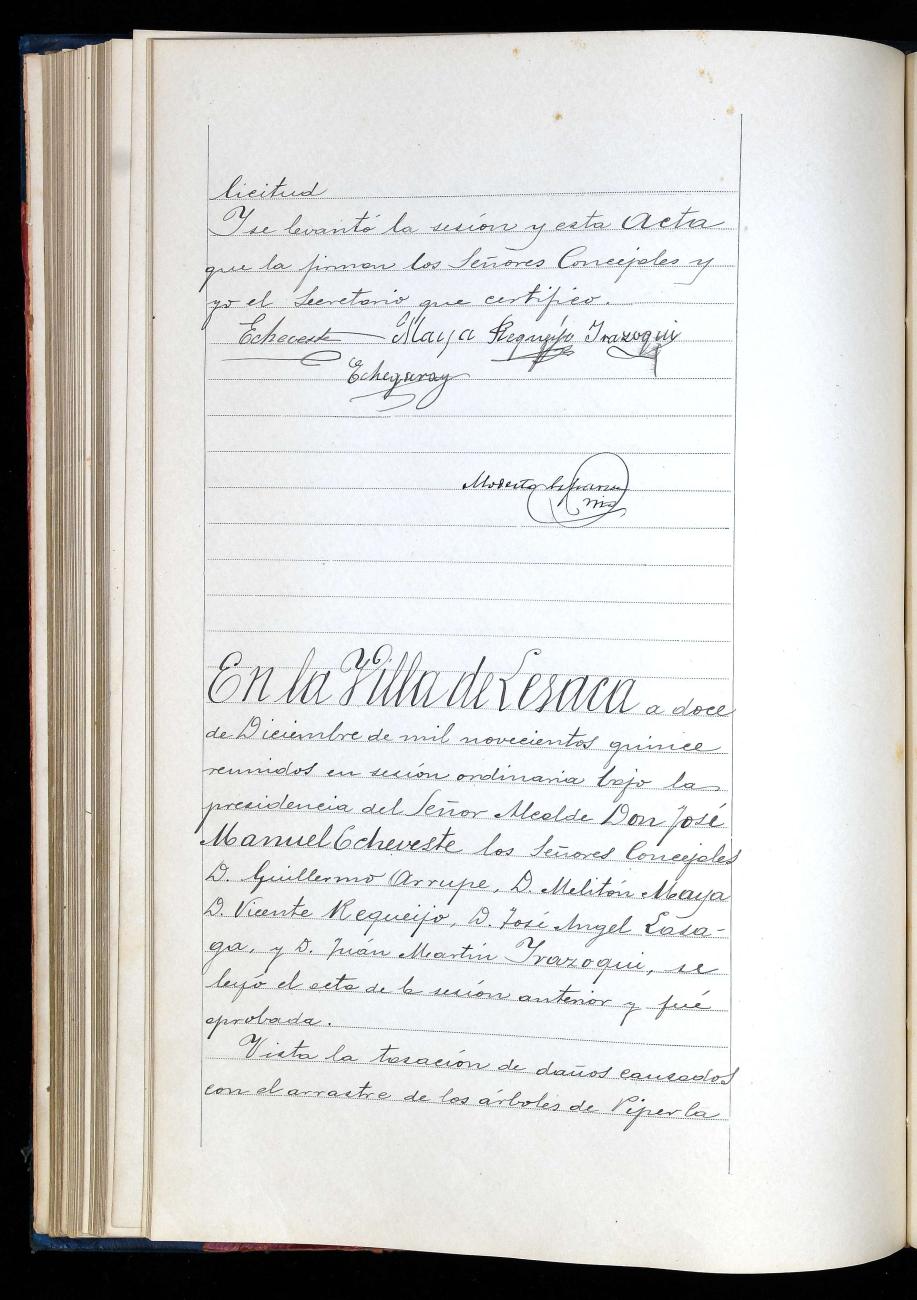 licitud
Y se levantó la sesión y esta Acta
que la firman los Señores Concejales y
yo el Secretario que certifico.
Echeveste Maya Requeijo Irazoqui
Echegaray
Modesto
En la Villa de Lesaca a doce
de Diciembre de mil novecientos quince
reunidos en sesión ordinaria bajo la
presidencia del Señor Alcalde Don José
Manuel Echeveste los Señores Concejales
D. Guillermo Arrupe, D. Melitón Maya
D. Vicente Requeijo, D. José Angel Lasa-
ga, y D. Juán Martín Irazoqui, se
leyó el acta de la sesión anterior y fué
aprobada.
Vista la tasación de daños causados
con el arrastre de los árboles de Piperla